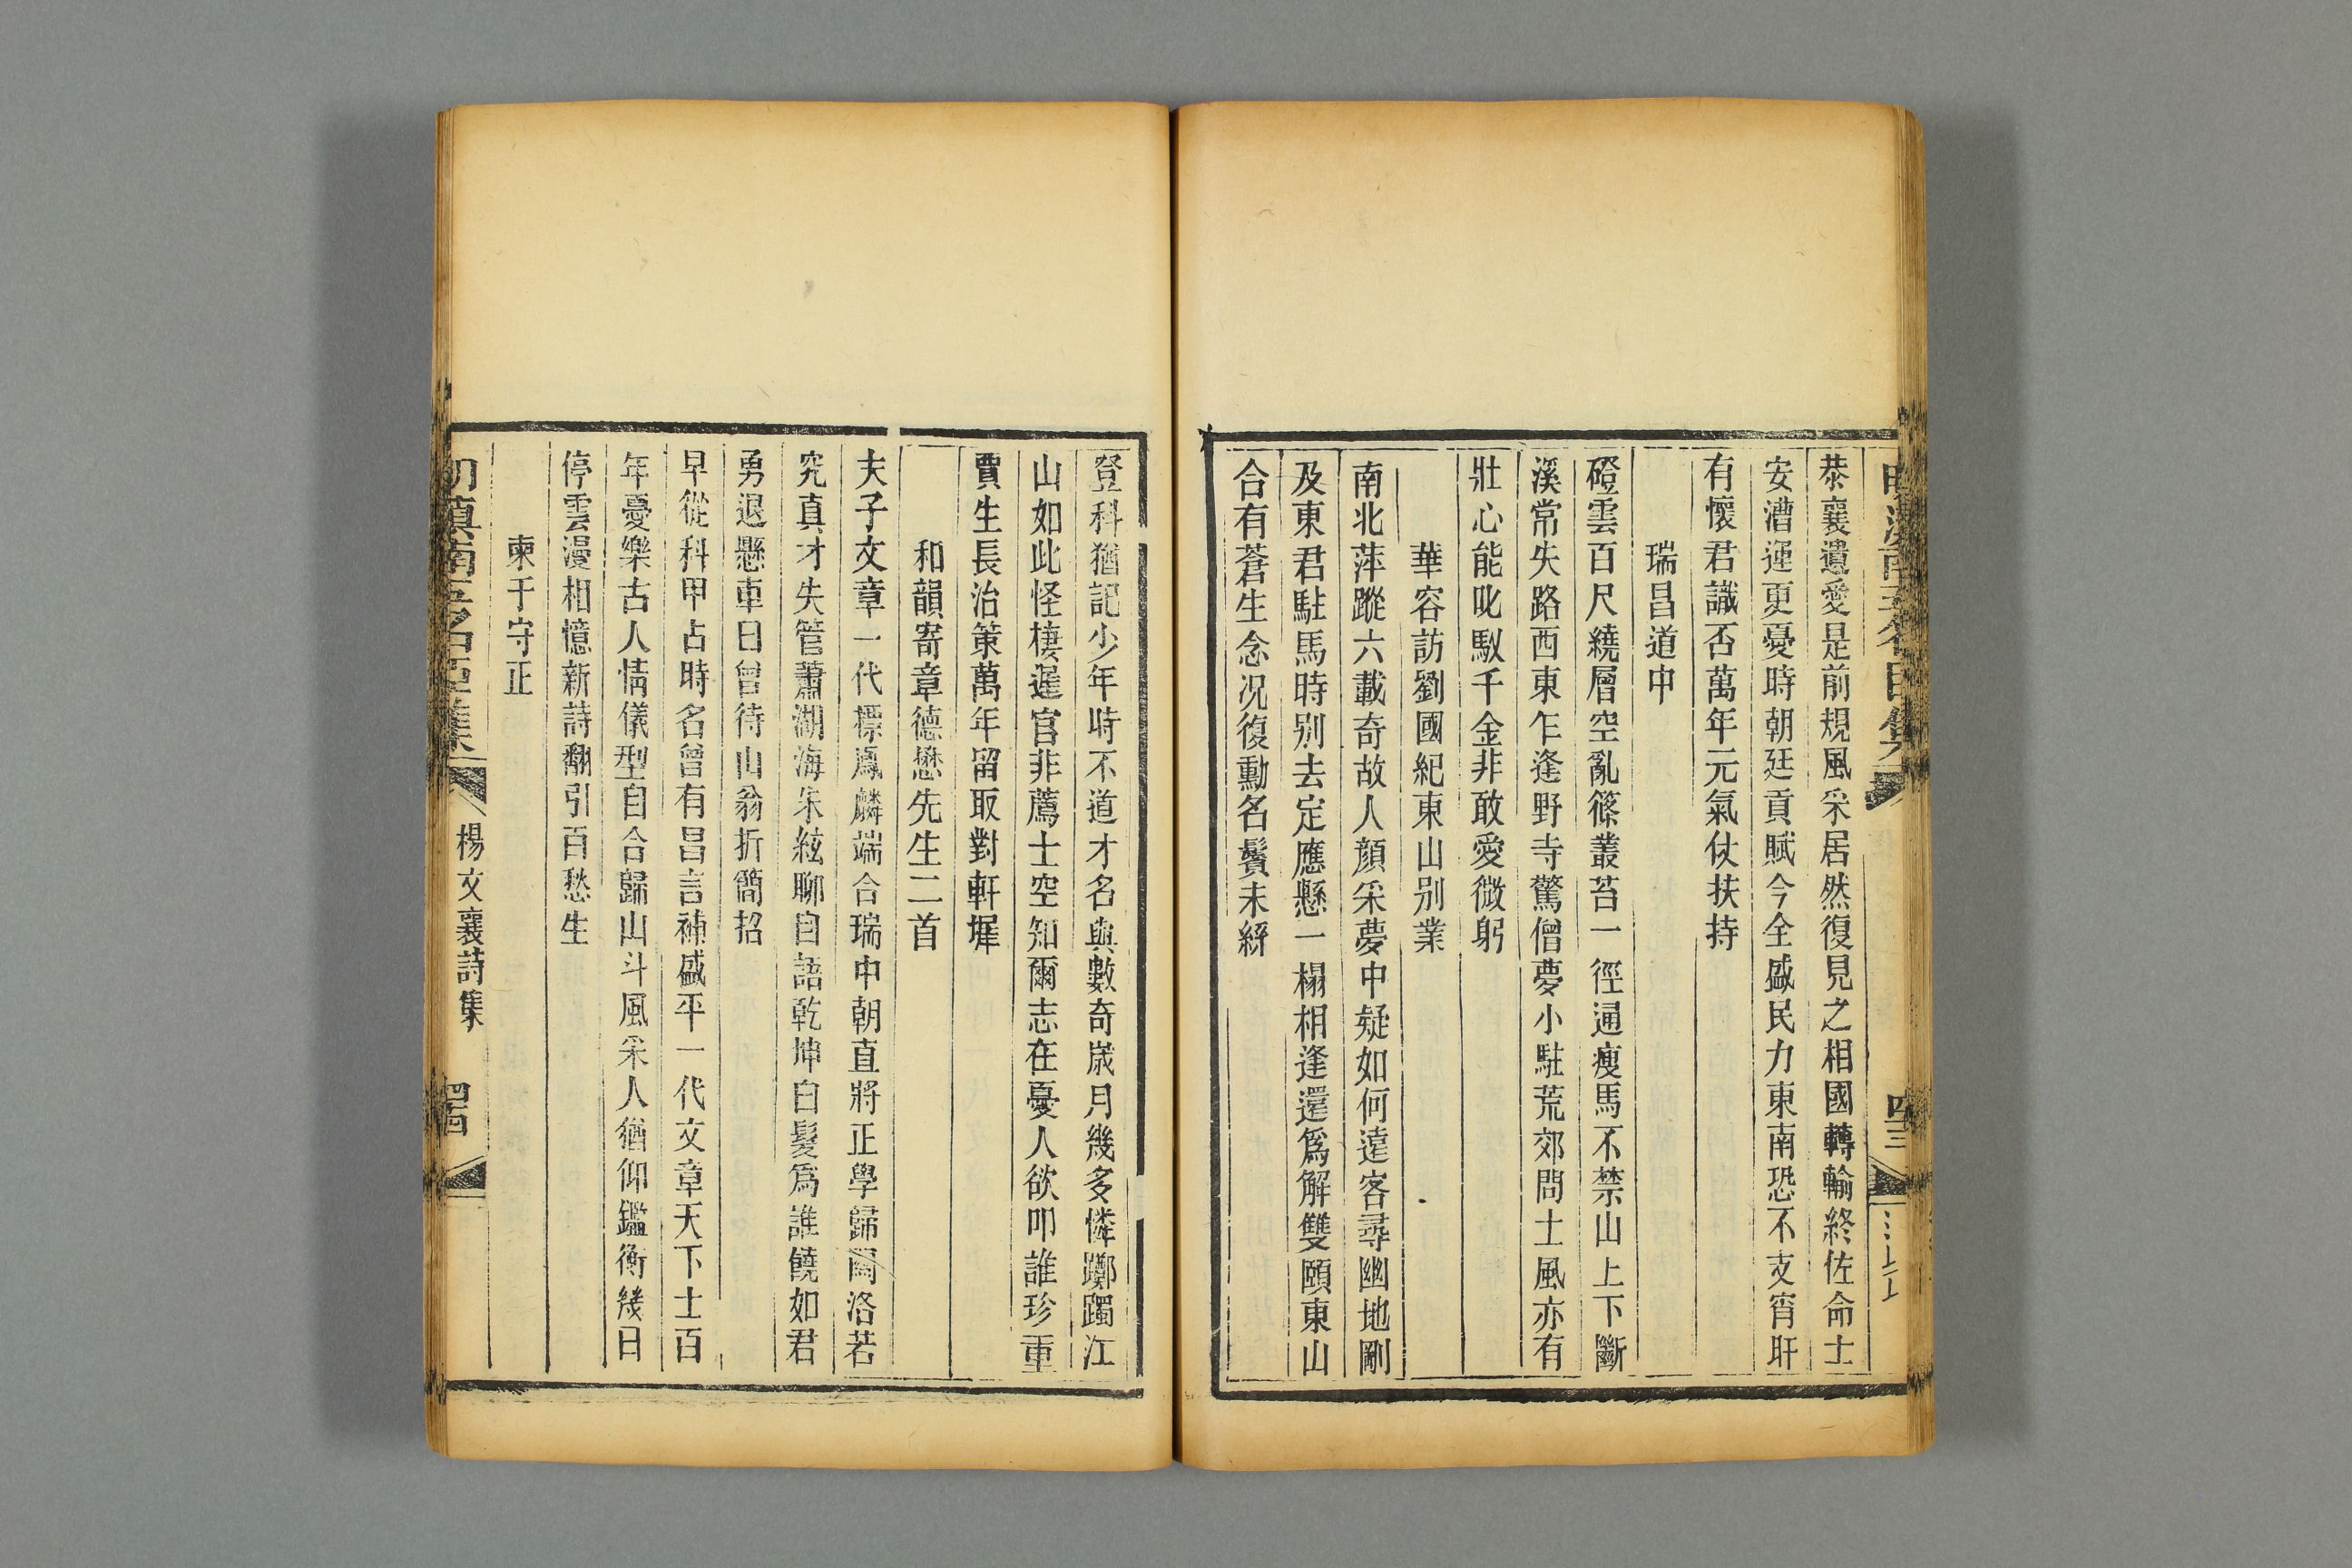 恭襄遺愛是前規風采居然復見之相國轉輸終佐命士
安漕運更憂時朝廷貢賦今全盛民力東南恐不支宵旰
有懷君識否萬年元氣仗扶持
瑞昌道中
磴雲百尺繞層空亂篠叢苔一徑通瘦馬不禁山上下斷
溪常失路西東乍逢野寺驚僧夢小駐荒郊問土風亦有
壯心能叱馭千金非敢愛微躬
華容訪劉國紀東山別業
南北萍蹤六載奇故人顏采夢中疑如何遠客尋幽地剛
及東君駐馬時別去定應懸一榻相逢還爲解雙頤東山
合有蒼生念況復勳名鬢未絲
登科猶記少年時不道才名與數奇歲月幾多憐躑躅江
山如此怪棲遲官非薦士空知爾志在憂人欲叩誰珍重
賈生長治策萬年留取對軒墀
和韻寄章德懋先生二首
夫子文章一代標鳳麟端合瑞中朝直將正學歸閩洛若
究真才失管蕭湖海朱絃聊自語乾坤白髮爲誰饒如君
勇退懸車日曾待山翁折簡招
早從科甲占時名曾有昌言補盛平一代文章天下士百
年憂樂古人情儀型自合歸山斗風采人猶仰鑑衡幾日
停雲漫相憶新詩翻引百愁生
柬于守正
明滇南五名臣集
楊文襄詩集
四四